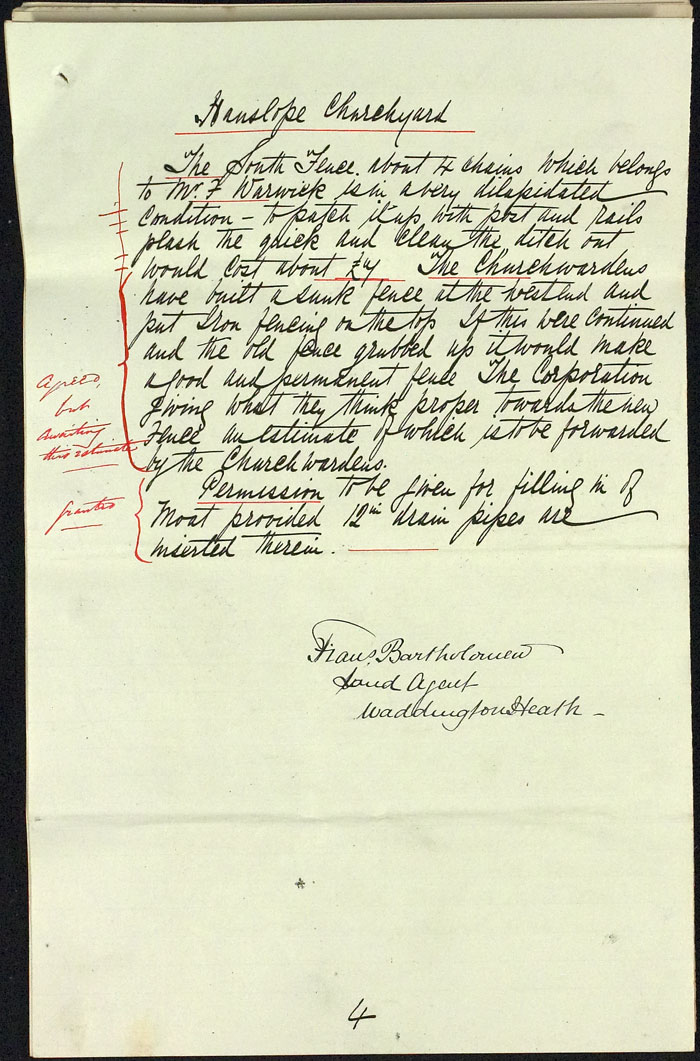 Hanslope Churchyard
The South Fence. about 4 chains which belongs
to Mr F Warwick is in a very dilapidated
Condition – to patch it up with post and rails
plash the quick and clean the ditch out
would cost about The Churchwardens
have built a sunk fence at the west end and
put Iron fencing on the top If this were continued
and the old fence grubbed up it would make
a good and permanent fence The Corporation
giving what they think proper towards the new
Fence an estimate of which is to be forwarded
by the Churchwardens.
Agreed,
but
awaiting
this estimate
Permission to be given for filling in of
Moat provided 12in drain pipes are
inserted therein.
granted
Frans. Bartholomew
Land Agent
Waddington Heath –
4